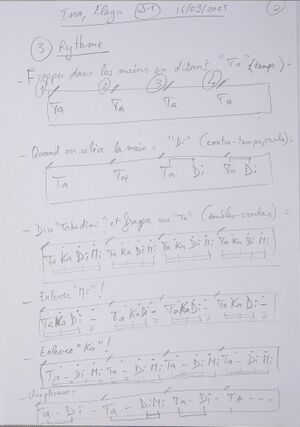 Ina, Elaga J-1 16/09/2025 2
3 Rythme
- Frapper dans les mains en disant "Ta" (temps) :
1 2 3 4
Ta Ta Ta Ta
- Quand on relève la main : "Di" (contre-temps, croches) :
Ta Ta Ta Di Ta Di
- Dire "Takadimi" et frapper sur "Ta" (doubles-croches) :
Ta Ka Di Mi Ta Ka Di Mi Ta Ka Di Mi Ta Ka Di Mi
- Enlever "Mi" !
Ta Ka Di - Ta Ka Di - Ta Ka Di - Ta Ka Di -
- Enlever "Ka" !
Ta - Di Mi Ta - Di Mi Ta - Di Mi Ta - Di Mi
- Une phrase :
Ta - Di - Ta - Di Mi Ta - Di - Ta - - -